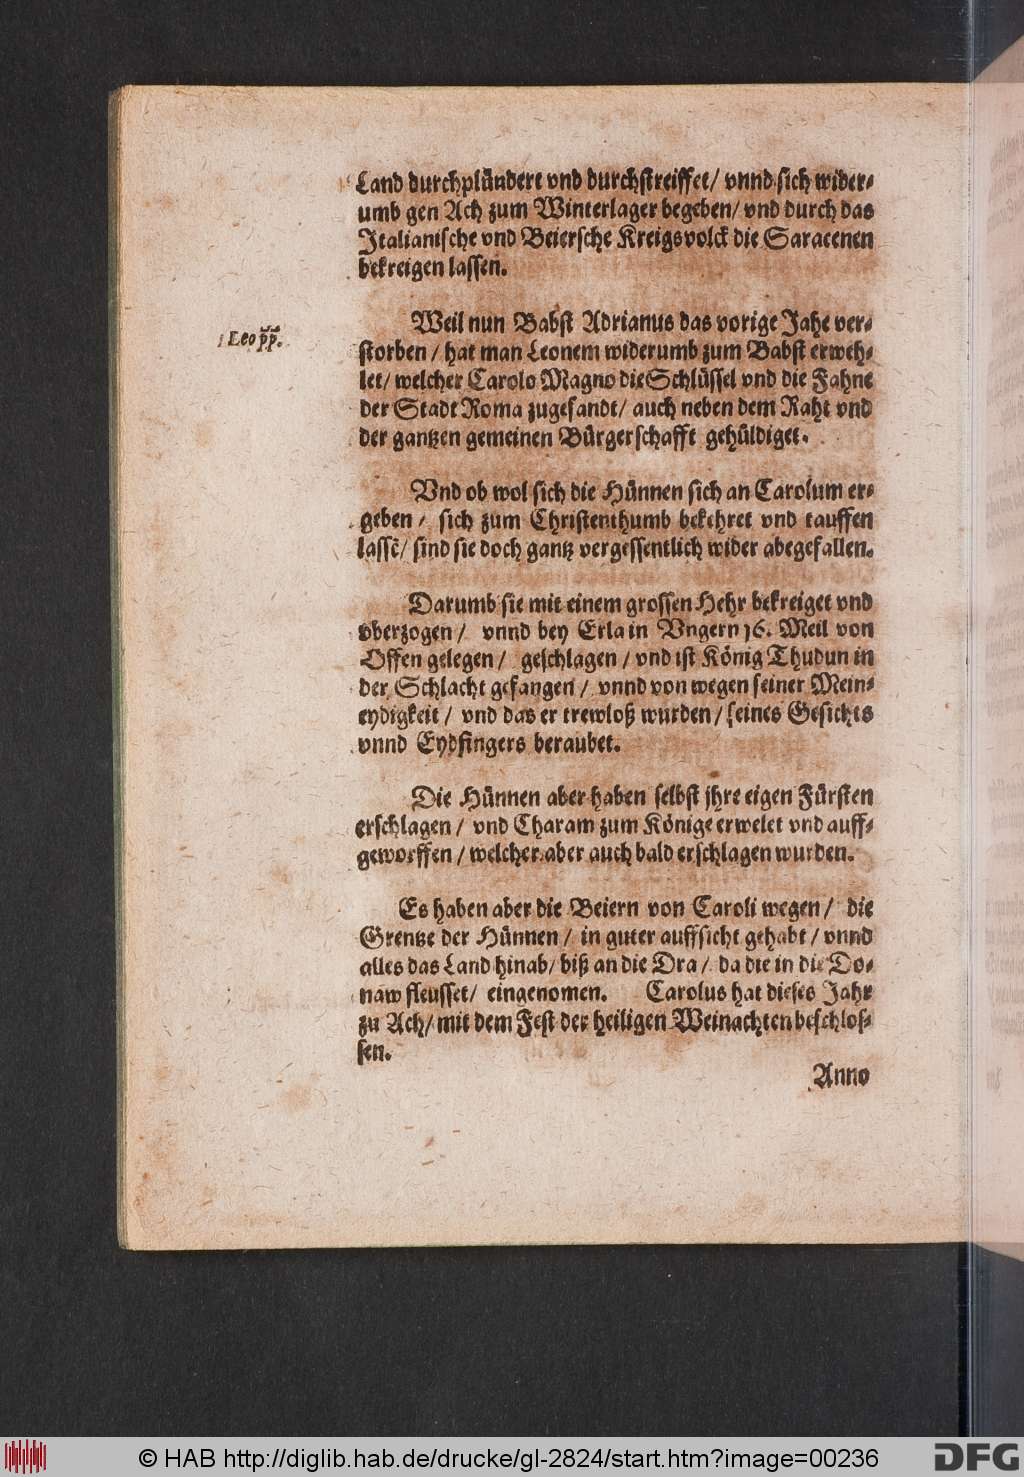 Land durchplündert vnd durchstreiffet/ vnnd sich wider⸗
umb gen Ach zum Winterlager begeben/ vnd durch das
Italianische vnd Beiersche Kreigsvolck die Saracenen
bekreigen lassen.
Leo p̃p̃.
Weil nun Babst Adrianus das vorige Jahr ver⸗
storben / hat man Leonem widerumb zum Babst erweh⸗
let/ welcher Carolo Magno die Schlüssel vnd die Fahne
der Stadt Roma zugesandt/ auch neben dem Raht vnd
der gantzen gemeinen Bürgerschafft gehüldiget.
Vnd ob wol sich die Hünnen sich an Carolum er⸗
geben / sich zum Christenthumb bekehret vnd tauffen
lassẽ/ sind sie doch gantz vergessentlich wider abegefallen.
Darumb sie mit einem grossen Hehr bekreiget vnd
vberzogen / vnnd bey Erla in Vngern 16. Meil von
Offen gelegen / geschlagen / vnd ist König Thudun in
der Schlacht gefangen / vnnd von wegen seiner Mein⸗
eydigkeit / vnd das er trewloß wurden / seines Gesichts
vnnd Eydfingers beraubet.
Die Hünnen aber haben selbst jhre eigen Fürsten
erschlagen / vnd Charam zum Könige erwelet vnd auff⸗
geworffen / welcher aber auch bald erschlagen wurden.
Es haben aber die Beiern von Caroli wegen / die
Grentze der Hünnen / in guter auffsicht gehabt / vnnd
alles das Land hinab/ biß an die Dra / da die in die Do⸗
naw fleusset/ eingenomen. Carolus hat dieses Jahr
zu Ach/ mit dem Fest der heiligen Weinachten beschlos⸗
sen.
Anno
© HAB http://diglib.hab.de/drucke/gl-2824/start.htm?image=00236
DFG